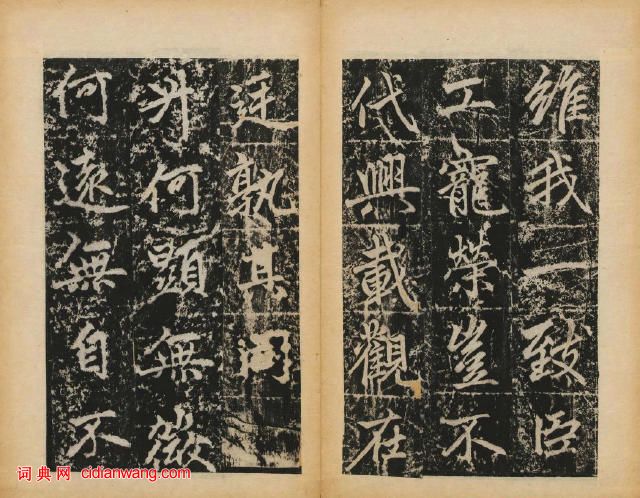 維我一致臣
工寵榮豈不
代興載觀在
廷孰其同
升何顯無微
何遠無自不
词典网 cidianwang.com